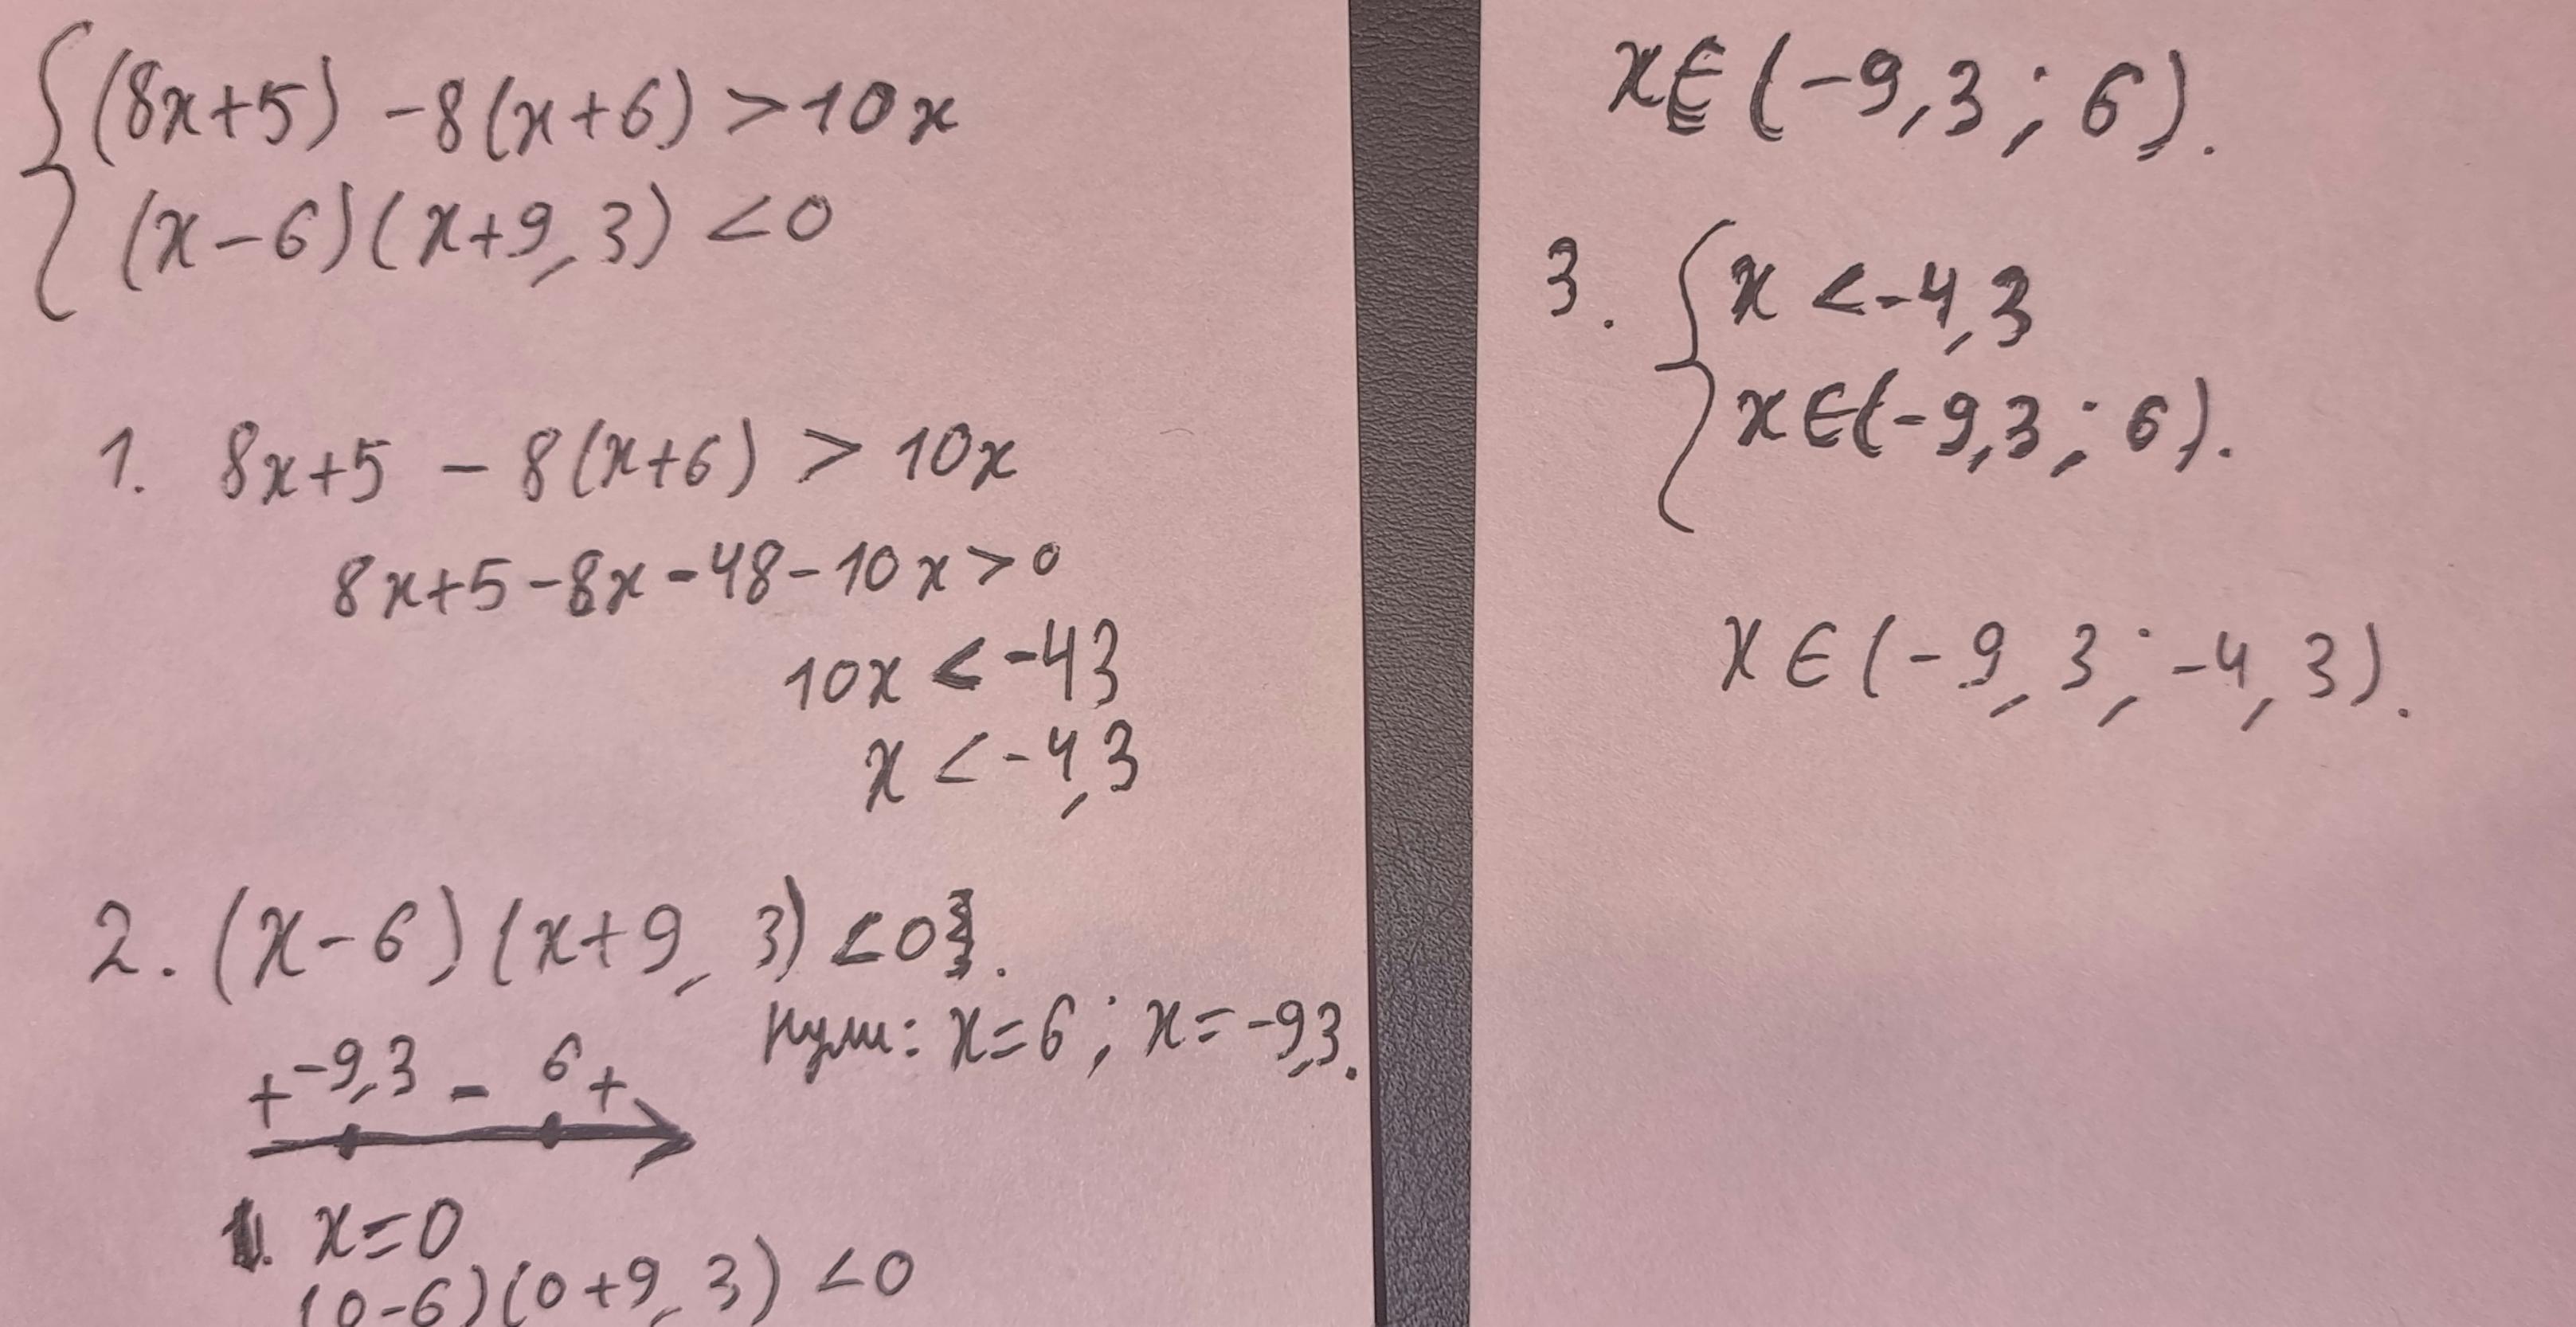 {(8x+5) -8(x+6)>10x
(x-6)(x+9,3)<0
1. 8x+5 - 8(x+6) > 10x
8x+5-8x-48-10x>0
10x < -43
x < -4,3
2. (x-6)(x+9,3)<0.
Нули: x=6; x=-9,3.
+ -9,3 - 6 +
1. x=0
(0-6)(0+9,3)<0
x∈(-9,3; 6).
3. {x <-4,3
x∈(-9,3; 6).
x∈(-9,3; -4,3).